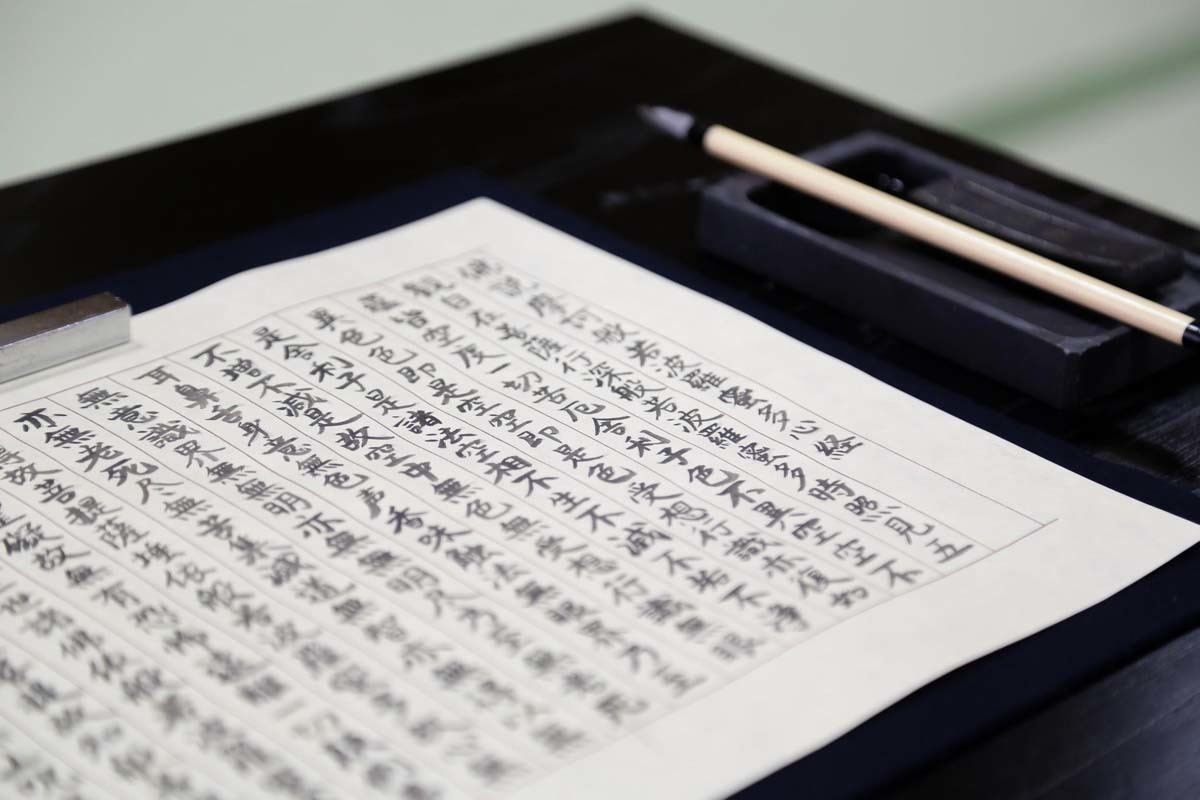 佛説摩訶般若波羅蜜多心経
観自在菩薩行深般若波羅蜜多時照見五
蘊皆空度一切苦厄舎利子色不異空空不
異色色即是空空即是色受想行識亦復如
是舎利子是諸法空相不生不滅不垢不浄
不増不減是故空中無色無受想行識無眼
耳鼻舌身意無色声香味触法無眼界乃至
無意識界無無明亦無無明尽乃至無老死
亦無老死尽無苦集滅道無智亦無得以無
得故菩提薩埵依般若波羅蜜多故心無
礙故無有恐怖遠離一切顛倒
世諸佛依般